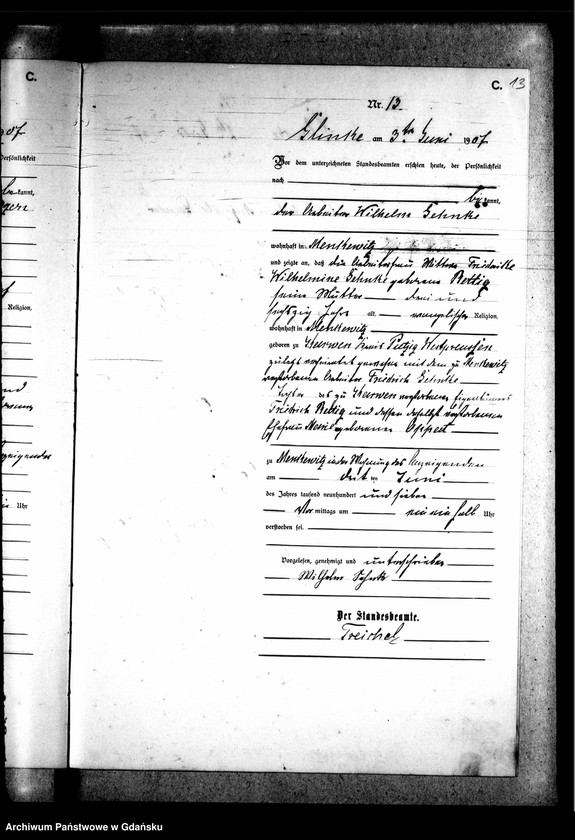 C.
C. 13
Nr. 13.
Glinke am 3ten Juni 1907
Vor dem unterzeichneten Standesbeamten erschien heute, der Persönlichkeit
nach
kannt,
der Arbeiter Wilhelm Gehnke
wohnhaft in Menkewitz
und zeigte an, daß die Arbeiterfrau Wittwe Friedericke
Wilhelmine Gehnke geborene Rettig
seine Mutter drei und
sechszig Jahre alt, evangelischer Religion,
wohnhaft in Menkewitz
geboren zu Kreis Putzig Westpreussen
zuletzt verheirathet gewesen mit dem zu Menkewitz
verstorbenen Arbeiter Friedrich Gehnke
Tochter des zu verstorbenen Eigenthümers
Fridrich Rettig und dessen daselbst verstorbenen
Ehefrau geborenen Oppert
zu Menkewitz in der Wohnung des Anzeigenden
am dritten Juni
des Jahres tausend neunhundert und sieben
Vor mittags um ein ein halb Uhr
verstorben sei.
Vorgelesen, genehmigt und unterschrieben
Wilhelm
Der Standesbeamte.
Treichel
07
Persönlichkeit
kannt,
Religion,
Uhr
Archiwum Państwowe w Gdańsku